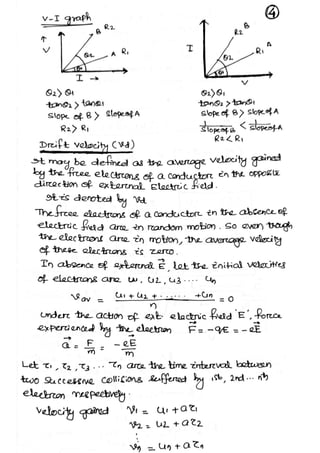 4
V-I graph
B R2
A R1
θ2
θ1
V
I →
B
R2
A
R1
θ2
θ1
I
V
θ2 > θ1
tanθ2 > tanθ1
Slope of B > Slope of A
R2 > R1
θ2 > θ1
tanθ2 > tanθ1
Slope of B > Slope of A
1/Slope of B < 1/Slope of A
R2 < R1
Drift velocity (Vd)
It may be defined as the average velocity gained
by the free electrons of a conductor in the opposite
direction of external Electric field.
It is denoted by Vd
The free electrons of a conductor in the absence of
electric field are in random motion. So even though
the electrons are in motion, the average velocity
of these electrons is zero.
In absence of external E⃗, let the initial velocities
of electrons are u1, u2, u3 .... un
Vav = (u1 + u2 + ....... + un)/n = 0
under the action of ext electric field 'E', force
experienced by the electron F⃗ = -qE = -eE⃗
a⃗ = F/m = -eE⃗/m
Let τ1, τ2, τ3 ... τn are the time interval between
two successive collisions suffered by 1st, 2nd... nth
electron respectively.
Velocity gained V1 = u1 + aτ1
V2 = u2 + aτ2
⋮
Vn = un + aτn